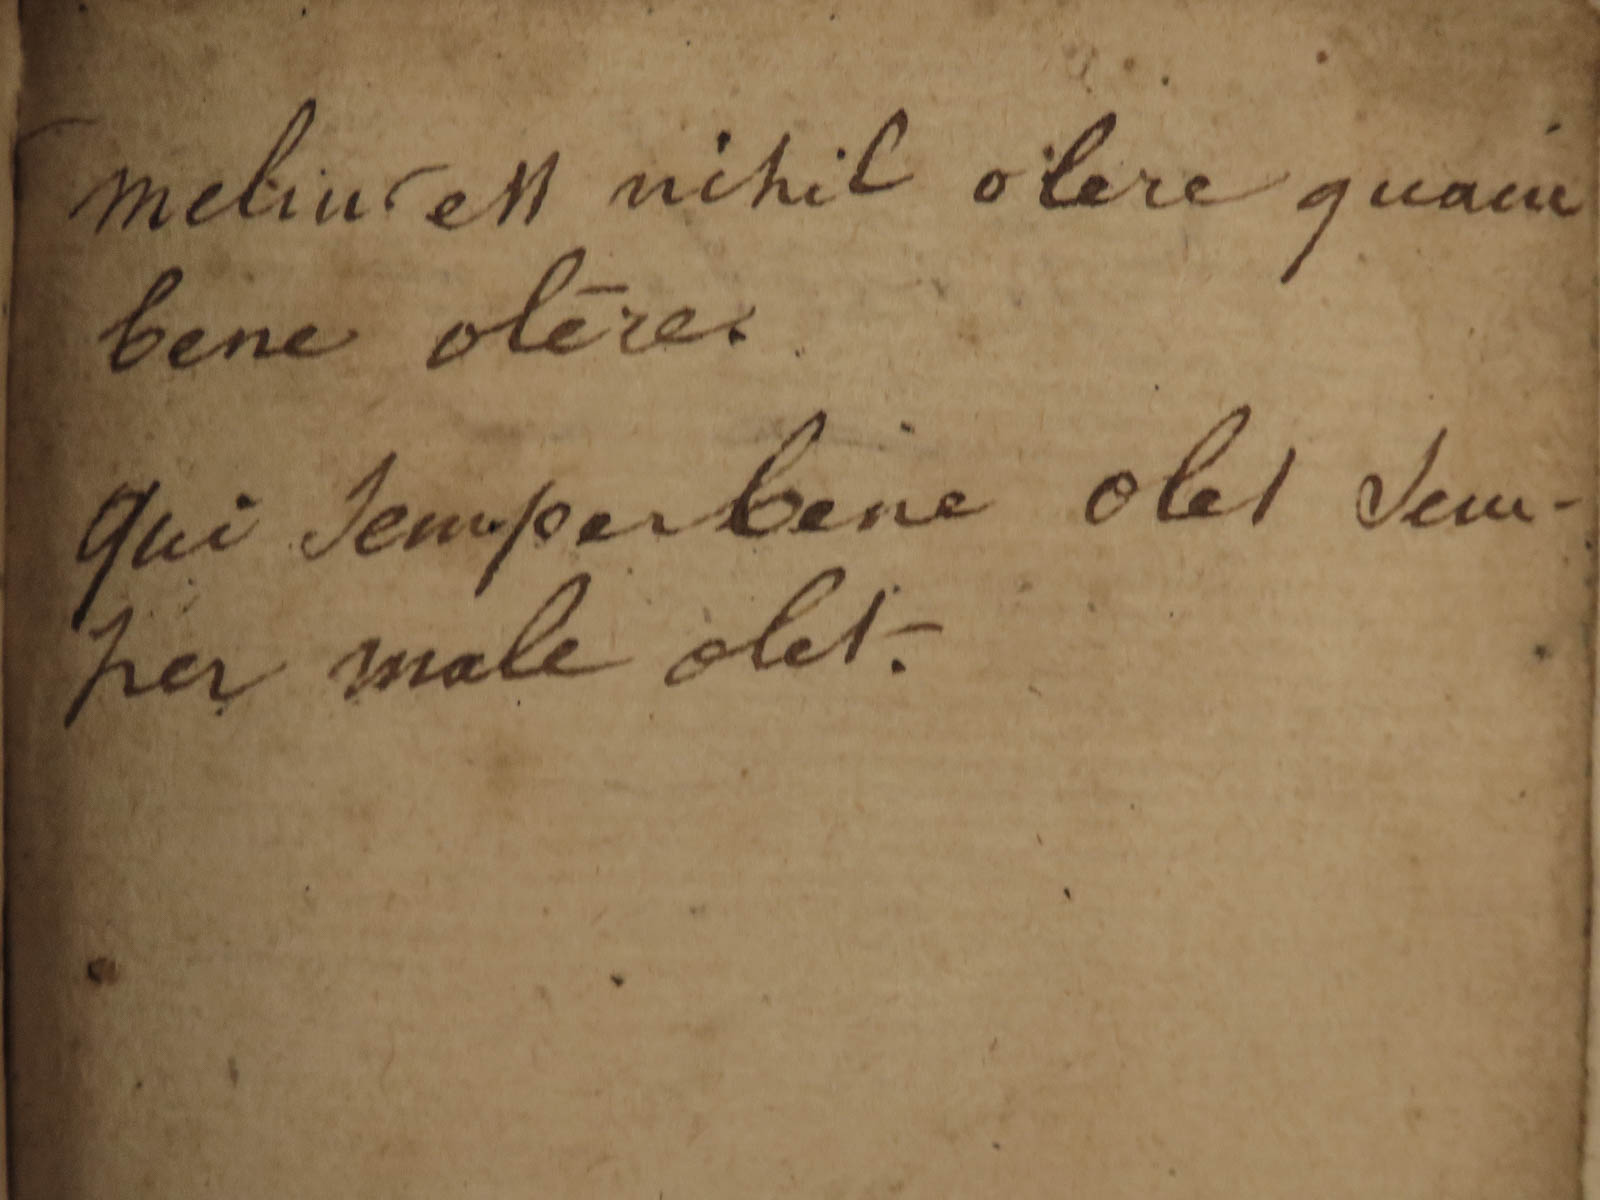 melius est nihil olere quam
bene olēre.
qui semper bene olet sem-
per male olet.-